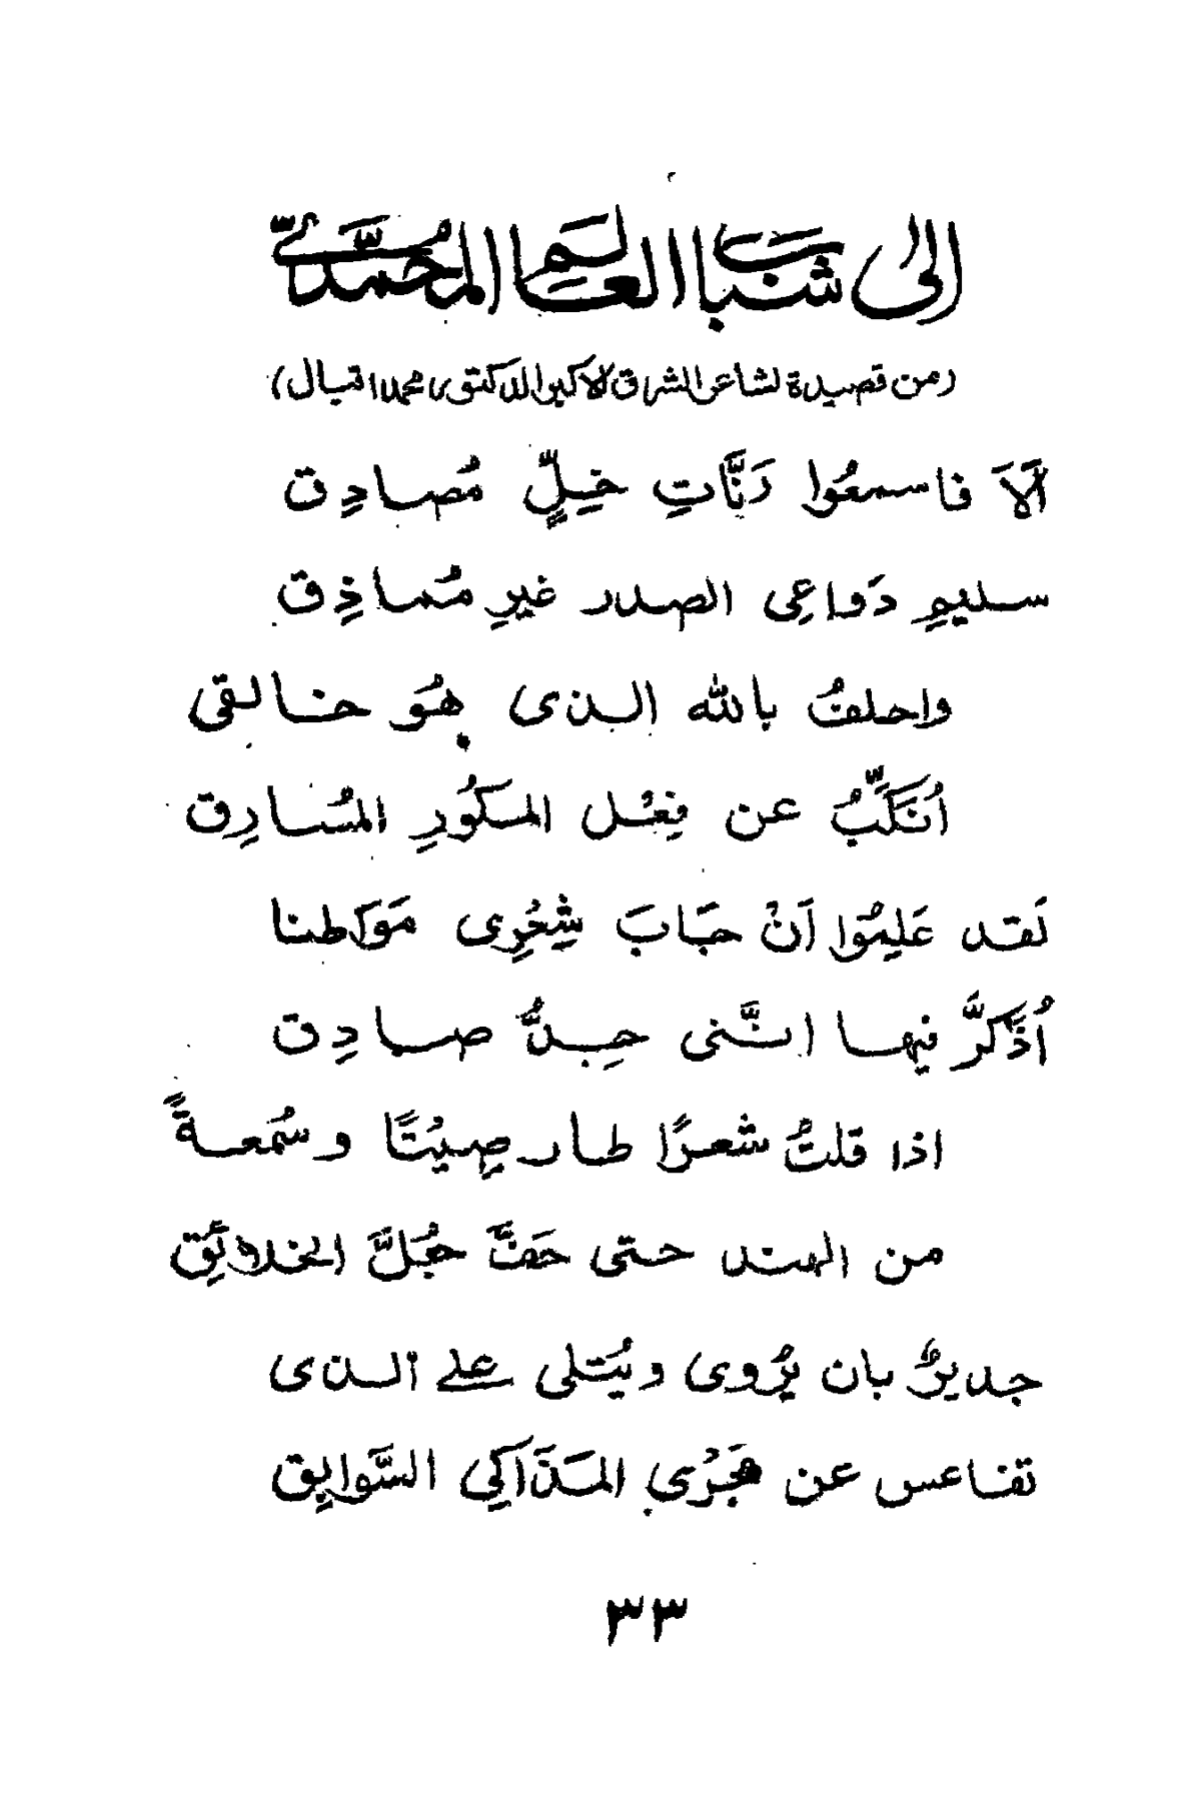 إلى شباب العالم المحمديّ
(من قصيدة لشاعر الشرق الاكبر الدكتور محمد اقبال)
اَلاَ فاسمعُوا رَنَّاتِ خِلٍّ مُصادِق
سليمِ دَواعِى الصدر غيرِ مُماذِق
واحلفُ بالله الذى هُوَ خالقى
اُنَكِّبُ عن فِعْل المكُورِ المُسارِق
لَقد عَلِمُوا اَنْ جَابَ شِعْرِى مَوَاطنا
اُذَكِّرُ فيها انَّنى جِدُّ صادِق
اذا قلتُ شعرًا طار صِيْتًا وسُمعةً
من الهند حتى حَفَّ جُلَّ الخلائِق
جديرٌ بان يُروى ويُتلى على الذى
تقاعس عن جَرْىِ المَذَاكِي السَّوابِق
٣٣